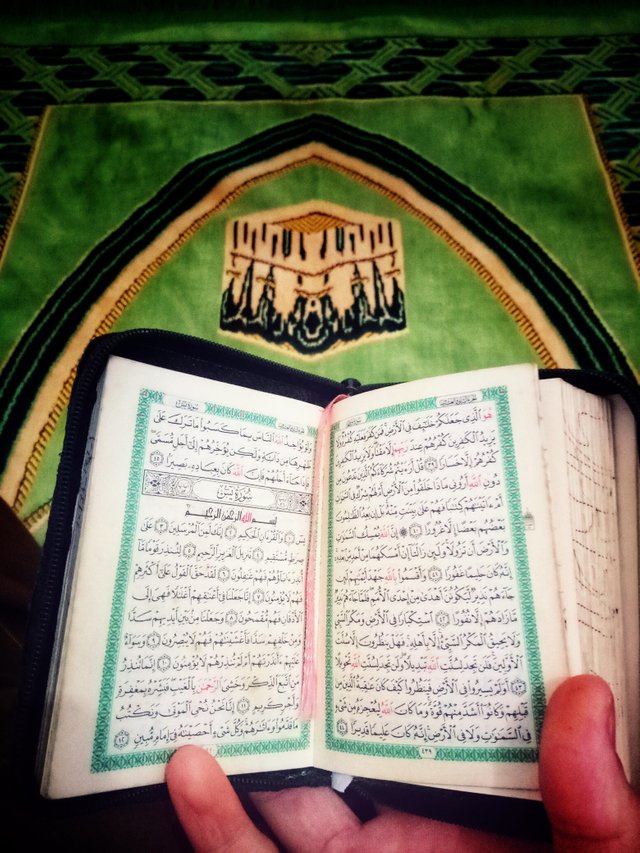 سُورَةُ فَاطِرٍ
هُوَ ٱلَّذِي جَعَلَكُمْ خَلَٰٓئِفَ فِي ٱلْأَرْضِ فَمَن كَفَرَ فَعَلَيْهِ كُفْرُهُۥ وَلَا
يَزِيدُ ٱلْكَٰفِرِينَ كُفْرُهُمْ عِندَ رَبِّهِمْ إِلَّا مَقْتًا وَلَا يَزِيدُ ٱلْكَٰفِرِينَ
كُفْرُهُمْ إِلَّا خَسَارًا ٣٩ قُلْ أَرَءَيْتُمْ شُرَكَآءَكُمُ ٱلَّذِينَ تَدْعُونَ مِن
دُونِ ٱللَّهِ أَرُونِي مَاذَا خَلَقُوا۟ مِنَ ٱلْأَرْضِ أَمْ لَهُمْ شِرْكٌ فِي ٱلسَّمَٰوَٰتِ
أَمْ ءَاتَيْنَٰهُمْ كِتَٰبًا فَهُمْ عَلَىٰ بَيِّنَتٍ مِّنْهُ بَلْ إِن يَعِدُ ٱلظَّٰلِمُونَ
بَعْضُهُم بَعْضًا إِلَّا غُرُورًا ٤٠ ۞ إِنَّ ٱللَّهَ يُمْسِكُ ٱلسَّمَٰوَٰتِ
وَٱلْأَرْضَ أَن تَزُولَا وَلَئِن زَالَتَآ إِنْ أَمْسَكَهُمَا مِنْ أَحَدٍ مِّنۢ بَعْدِهِۦٓ
إِنَّهُۥ كَانَ حَلِيمًا غَفُورًا ٤١ وَأَقْسَمُوا۟ بِٱللَّهِ جَهْدَ أَيْمَٰنِهِمْ لَئِن
جَآءَهُمْ نَذِيرٌ لَّيَكُونُنَّ أَهْدَىٰ مِنْ إِحْدَى ٱلْأُمَمِ فَلَمَّا جَآءَهُمْ نَذِيرٌ
مَّا زَادَهُمْ إِلَّا نُفُورًا ٤٢ ٱسْتِكْبَارًا فِي ٱلْأَرْضِ وَمَكْرَ ٱلسَّيِّئِ
وَلَا يَحِيقُ ٱلْمَكْرُ ٱلسَّيِّئُ إِلَّا بِأَهْلِهِۦ فَهَلْ يَنظُرُونَ إِلَّا سُنَّتَ
ٱلْأَوَّلِينَ فَلَن تَجِدَ لِسُنَّتِ ٱللَّهِ تَبْدِيلًا وَلَن تَجِدَ لِسُنَّتِ ٱللَّهِ تَحْوِيلًا
٤٣ أَوَلَمْ يَسِيرُوا۟ فِي ٱلْأَرْضِ فَيَنظُرُوا۟ كَيْفَ كَانَ عَٰقِبَةُ ٱلَّذِينَ مِن
قَبْلِهِمْ وَكَانُوٓا۟ أَشَدَّ مِنْهُمْ قُوَّةً وَمَا كَانَ ٱللَّهُ لِيُعْجِزَهُۥ مِن شَيْءٍ
فِي ٱلسَّمَٰوَٰتِ وَلَا فِي ٱلْأَرْضِ إِنَّهُۥ كَانَ عَلِيمًا قَدِيرًا ٤٤
٤٣٩
سُورَةُ يسٓ
وَلَوْ يُؤَاخِذُ ٱللَّهُ ٱلنَّاسَ بِمَا كَسَبُوا۟ مَا تَرَكَ عَلَىٰ
ظَهْرِهَا مِن دَآبَّةٍ وَلَٰكِن يُؤَخِّرُهُمْ إِلَىٰٓ أَجَلٍ مُّسَمًّى
فَإِذَا جَآءَ أَجَلُهُمْ فَإِنَّ ٱللَّهَ كَانَ بِعِبَادِهِۦ بَصِيرًۢا ٤٥
سُورَةُ يسٓ
بِسْمِ ٱللَّهِ ٱلرَّحْمَٰنِ ٱلرَّحِيمِ
يسٓ ١ وَٱلْقُرْءَانِ ٱلْحَكِيمِ ٢ إِنَّكَ لَمِنَ ٱلْمُرْسَلِينَ ٣ عَلَىٰ
صِرَٰطٍ مُّسْتَقِيمٍ ٤ تَنزِيلَ ٱلْعَزِيزِ ٱلرَّحِيمِ ٥ لِتُنذِرَ قَوْمًا مَّآ
أُنذِرَ ءَابَآؤُهُمْ فَهُمْ غَٰفِلُونَ ٦ لَقَدْ حَقَّ ٱلْقَوْلُ عَلَىٰٓ أَكْثَرِهِمْ
فَهُمْ لَا يُؤْمِنُونَ ٧ إِنَّا جَعَلْنَا فِيٓ أَعْنَٰقِهِمْ أَغْلَٰلًا فَهِيَ إِلَى
ٱلْأَذْقَانِ فَهُم مُّقْمَحُونَ ٨ وَجَعَلْنَا مِنۢ بَيْنِ أَيْدِيهِمْ سَدًّا
وَمِنْ خَلْفِهِمْ سَدًّا فَأَغْشَيْنَٰهُمْ فَهُمْ لَا يُبْصِرُونَ ٩ وَسَوَآءٌ
عَلَيْهِمْ ءَأَنذَرْتَهُمْ أَمْ لَمْ تُنذِرْهُمْ لَا يُؤْمِنُونَ ١٠ إِنَّمَا تُنذِرُ
مَنِ ٱتَّبَعَ ٱلذِّكْرَ وَخَشِيَ ٱلرَّحْمَٰنَ بِٱلْغَيْبِ فَبَشِّرْهُ بِمَغْفِرَةٍ
وَأَجْرٍ كَرِيمٍ ١١ إِنَّا نَحْنُ نُحْيِ ٱلْمَوْتَىٰ وَنَكْتُبُ
مَا قَدَّمُوا۟ وَءَاثَٰرَهُمْ وَكُلَّ شَيْءٍ أَحْصَيْنَٰهُ فِيٓ إِمَامٍ مُّبِينٍ ١٢